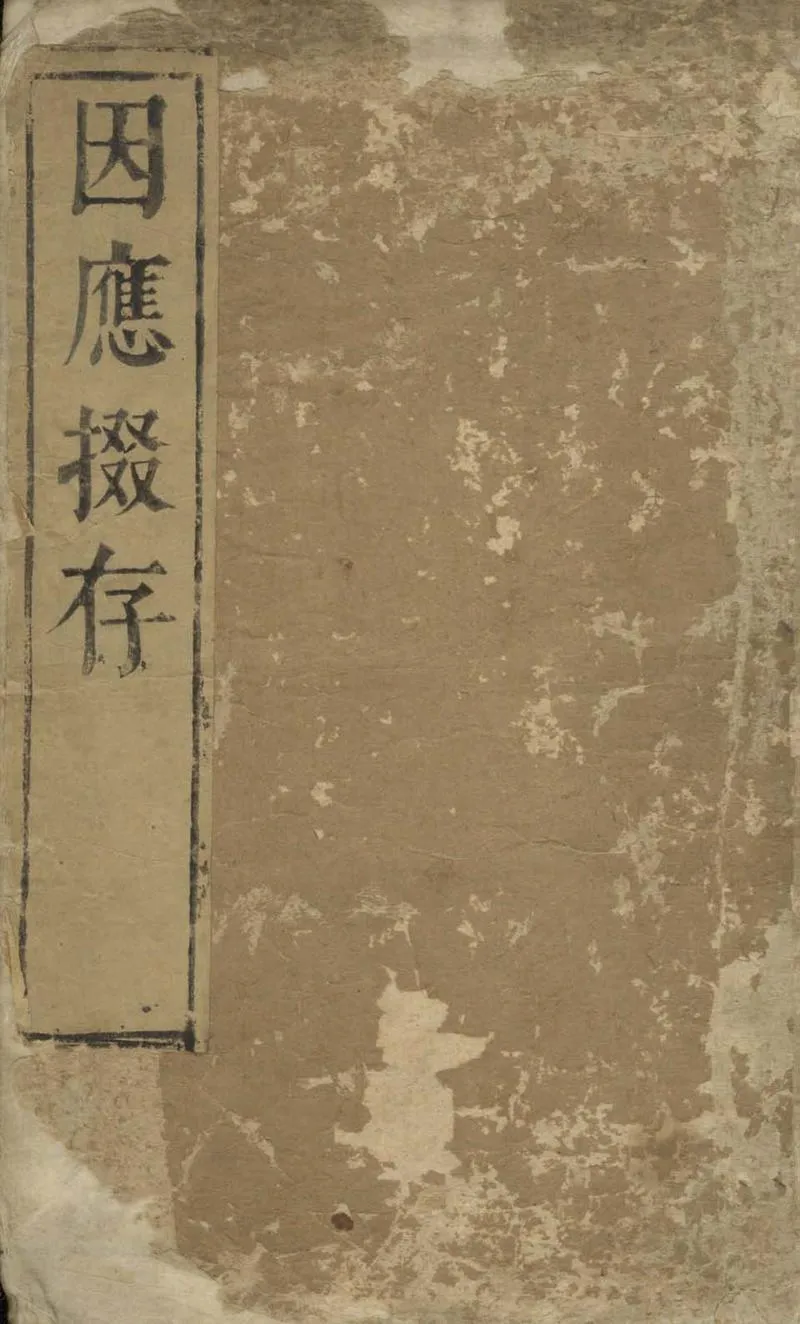 因應掇存